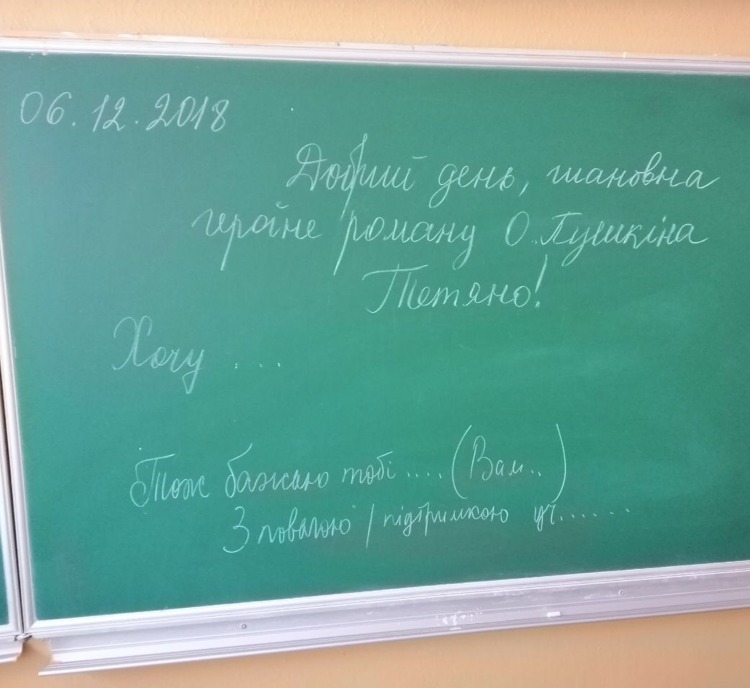 06.12.2018
Добрий день, шановна
героїне роману О.Пушкіна
Тетяно!
Хочу ....
Тож бажаю тобі .... (Вам..)
З повагою / підтримкою уч......